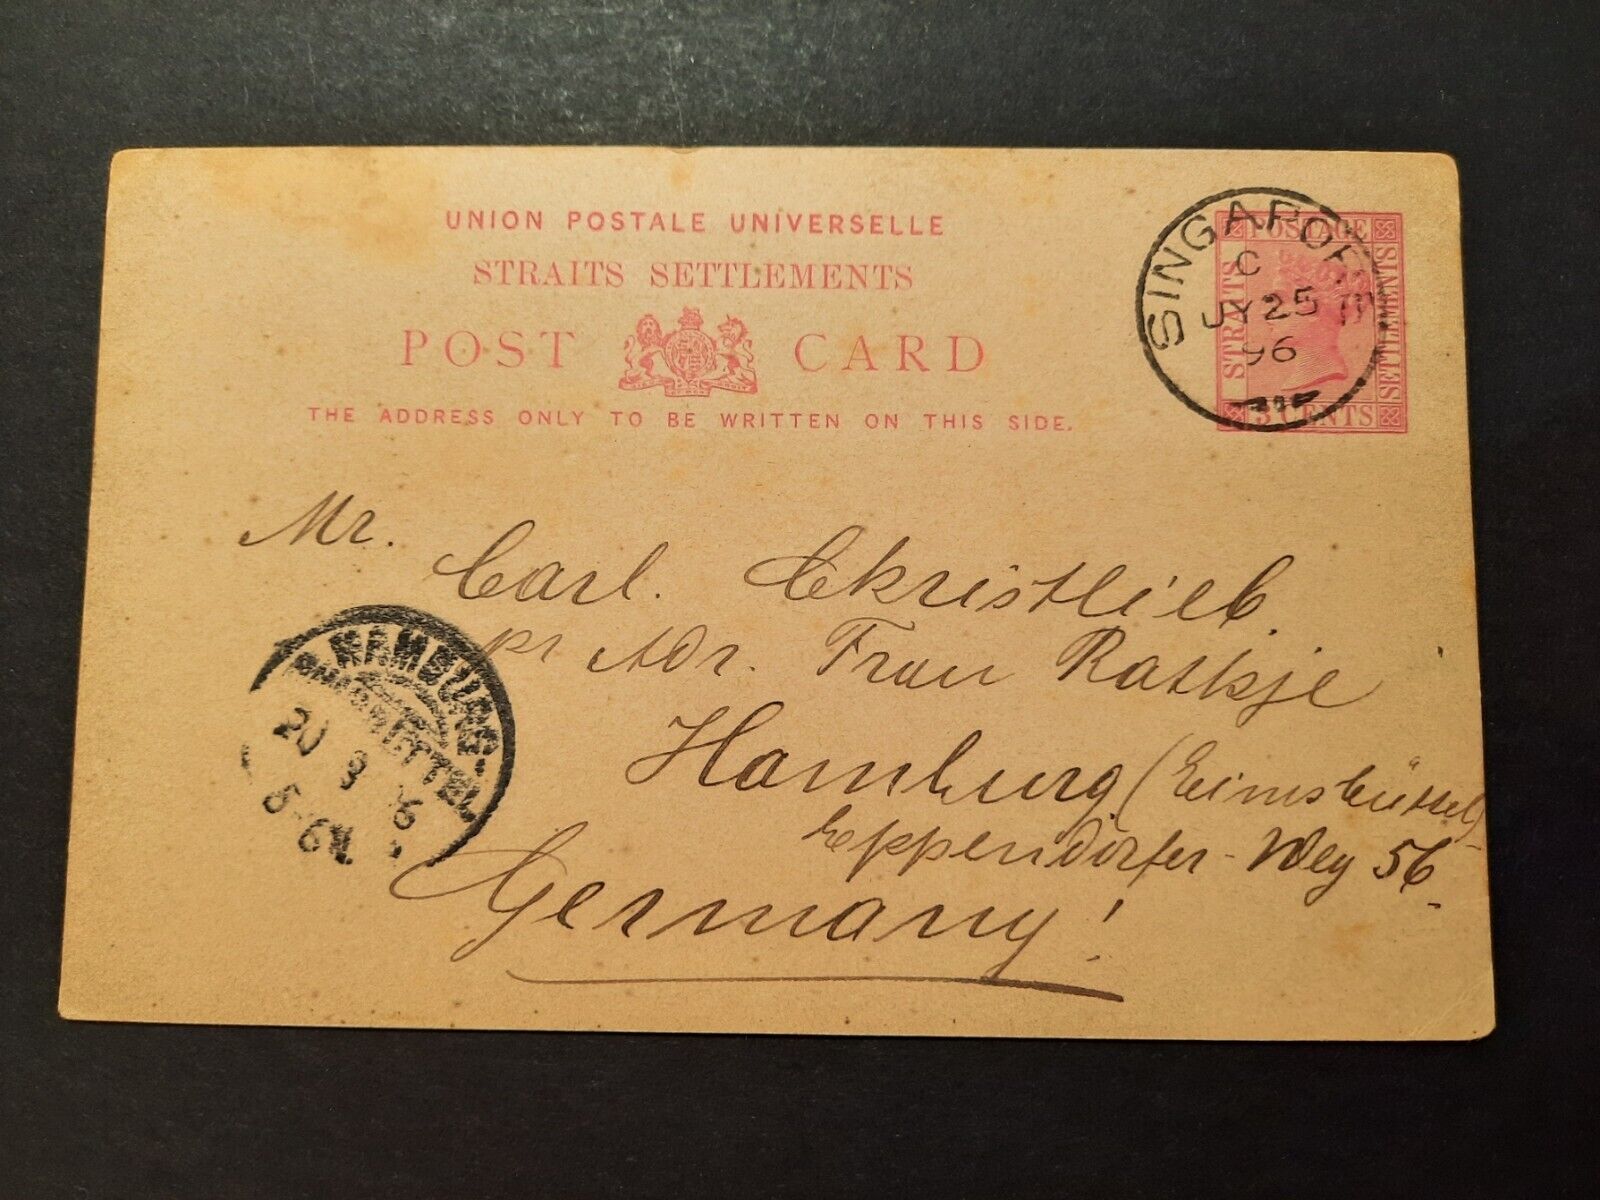 UNION POSTALE UNIVERSELLE
STRAITS SETTLEMENTS
POST CARD
THE ADDRESS ONLY TO BE WRITTEN ON THIS SIDE.
POSTAGE
STRAITS
SETTLEMENTS
3 CENTS
SINGAPORE
C
JY 25
96
Mr. Carl. Christlieb
pr Adr. Frau Rathje
Hamburg (Eimsbüttel)
Eppendorfer-Weg 56
Germany!
HAMBURG-
EIMSBÜTTEL
20 8 96
5-6N